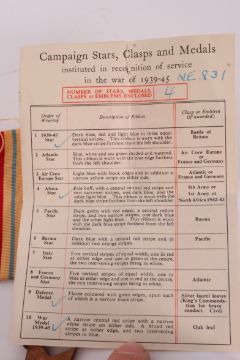 Campaign Stars, Clasps and Medals
instituted in recognition of service
in the war of 1939-45
NE.831
NUMBER OF STARS, MEDALS,
CLASPS or EMBLEMS ENCLOSED
4
Order of Wearing
Description of Ribbon
Clasp or Emblem (if awarded)
1 1939-45 Star
Dark blue, red and light blue in three equal
vertical stripes. This ribbon is worn with the
dark blue stripe furthest from the left shoulder.
Battle of Britain
2 Atlantic Star
Blue, white and sea green shaded and watered.
This ribbon is worn with the blue edge furthest
from the left shoulder.
Air Crew Europe or France and Germany
3 Air Crew Europe Star
Light blue with black edges and in addition a
narrow yellow stripe on either side.
Atlantic or France and Germany
4 Africa Star
Pale buff, with a central vertical red stripe and
two narrower stripes, one dark blue, and the
other light blue. This ribbon is worn with the
dark blue stripe furthest from the left shoulder.
8th Army or 1st Army or North Africa 1942-43
5 Pacific Star
Dark green with red edges, a central yellow
stripe, and two narrow stripes, one dark blue
and the other light blue. This ribbon is worn
with the dark blue stripe furthest from the left
shoulder.
Burma
6 Burma Star
Dark blue with a central red stripe and in
addition two orange stripes.
Pacific
7 Italy Star
Five vertical stripes of equal width, one in red
at either edge and one in green at the centre,
the two intervening stripes being in white.
8 France and Germany Star
Five vertical stripes of equal width, one in
blue at either edge and one in red at the centre,
the two intervening stripes being in white.
Atlantic
9 Defence Medal
Flame coloured with green edges, upon each
of which is a narrow black stripe.
Silver laurel leaves (King's Commendation for brave conduct. Civil)
10 War Medal 1939-45
A narrow central red stripe with a narrow
white stripe on either side. A broad red
stripe at either edge, and two intervening
stripes in blue.
Oak leaf